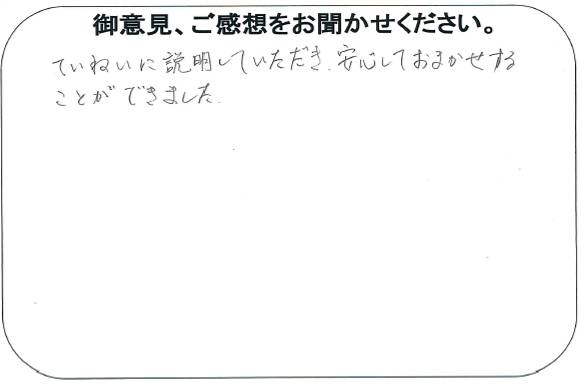 御意見、ご感想をお聞かせください。
ていねいに説明していただき、安心しておまかせする
ことができました.